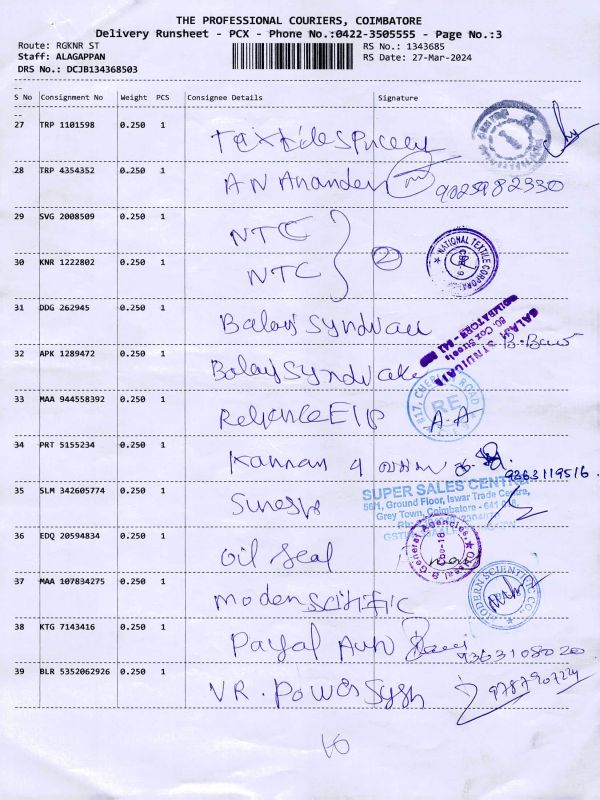 THE PROFESSIONAL COURIERS, COIMBATORE
Delivery Runsheet - PCX - Phone No.:0422-3505555 - Page No.:3
Route: RGKNR ST
RS No.: 1343685
Staff: ALAGAPPAN
RS Date: 27-Mar-2024
DRS No.: DCJB134368503
S No Consignment No Weight PCS Consignee Details Signature
27 TRP 1101598 0.250 1
28 TRP 4354352 0.250 1 AN Anander 9025982330
29 SVG 2008509 0.250 1 NTC
30 KNR 1222802 0.250 1 NTC
2
NATIONAL TEXTILE CORPORA
31 DDG 262945 0.250 1 Balaji
BALAJI SYNDICATE
COIMBATORE - 641
32 APK 1289472 0.250 1 Balaji
33 MAA 944558392 0.250 1 Reliance
RE
A.A
34 PRT 5155234 0.250 1 Kannan 9363119516.
35 SLM 342605774 0.250 1
SUPER SALES CENTRE
56/1, Ground Floor, Iswar Trade Centre,
Grey Town, Coimbatore - 641
36 EDQ 20594834 0.250 1 Oil Seal
& General Agencies,
37 MAA 107834275 0.250 1 Moden
MODERN SCIENTIFIC CO.,
38 KTG 7143416 0.250 1 Payal Auto 9363108020
39 BLR 5352062926 0.250 1 VR. Power 9787907224
16